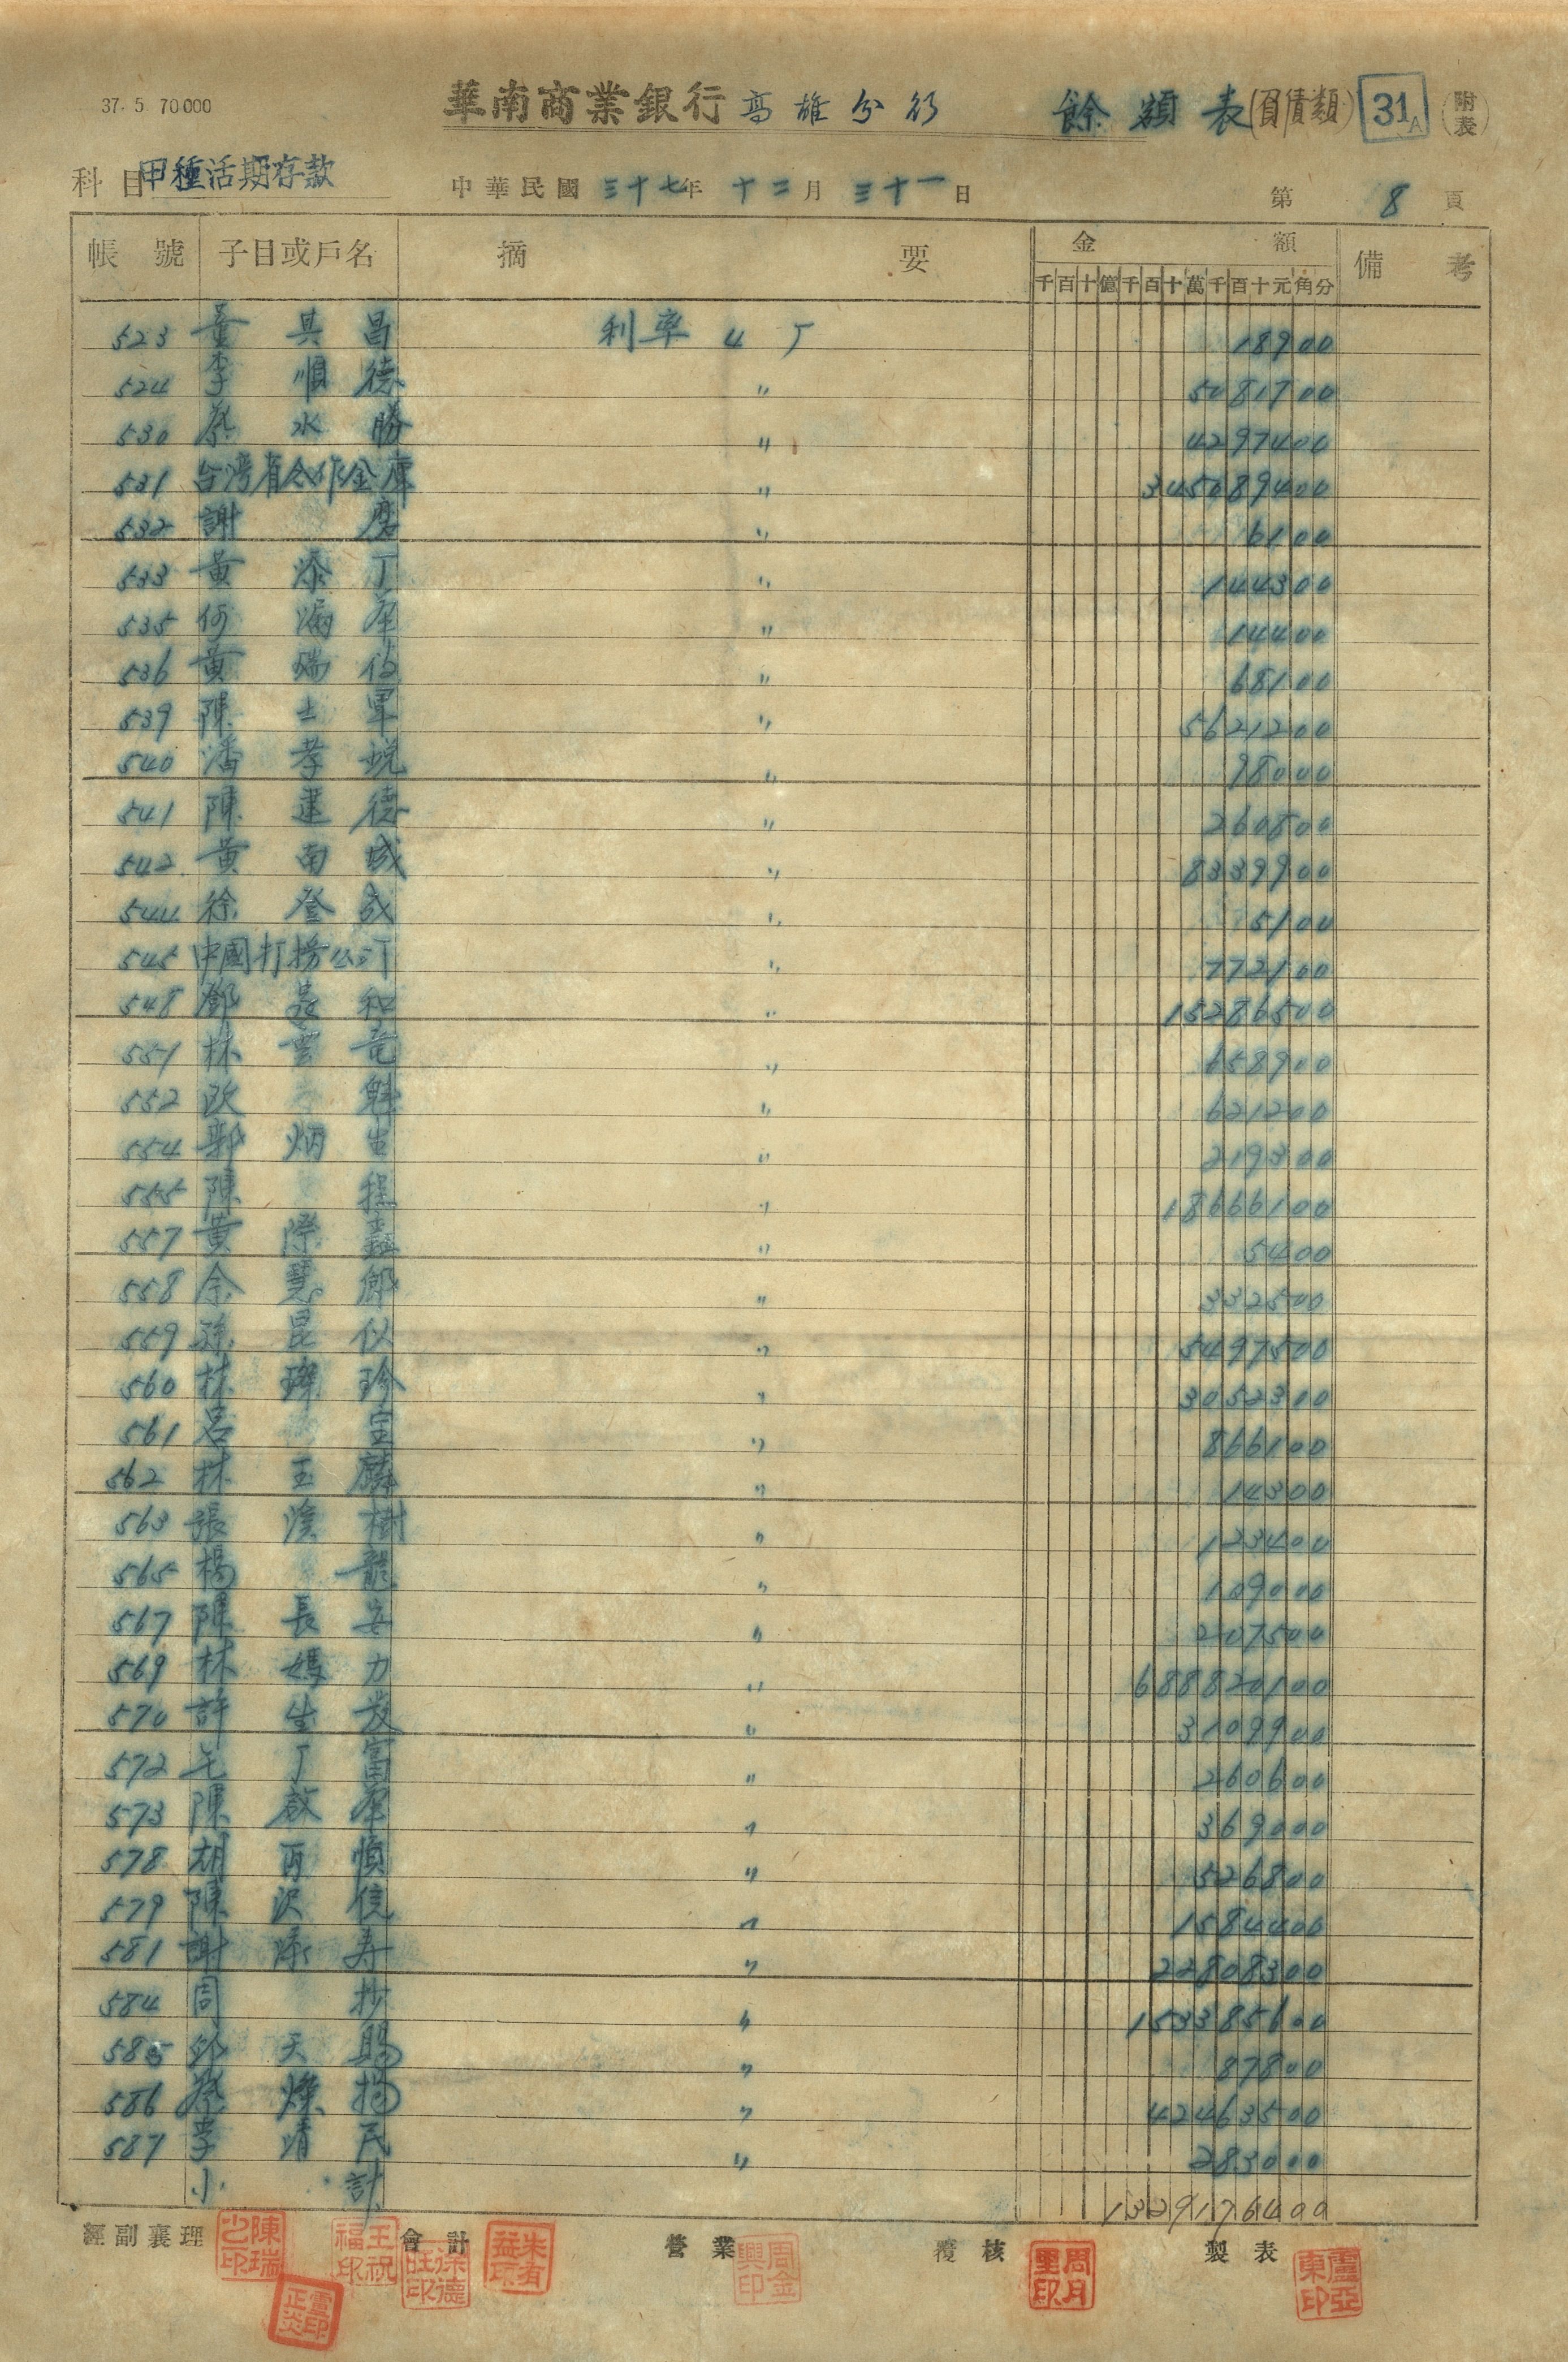 37. 5 70000
華南商業銀行 高雄分行 餘額表(負債類) 31A (附表)
科目 甲種活期存款 中華民國 三十七年 十二月 三十一日 第 8 頁
帳號 子目或戶名 摘要 金額 備考
千百十億千百十萬千百十元角分
523 董其昌 利率 4 18900
524 李順德 〃 5081700
530 蔡水勝 〃 4297400
531 台湾省合作金庫 〃 345089400
532 謝 〃 6100
533 黃添丁 〃 144300
535 何 〃 14400
536 黃瑞 〃 68100
539 陳士軍 〃 5621200
540 潘孝 〃 98000
541 陳建德 〃 260800
542 黃南城 〃 8339900
544 徐登成 〃 5100
545 中國打撈公司 〃 772100
548 鄧 和 〃 15286500
551 林雲竜 〃 658900
552 欧魁 〃 621200
554 郭炳生 〃 219300
555 陳程 〃 18666100
557 黃際 〃 5400
558 余慧卿 〃 332500
559 孫昆 〃 5497500
560 林 珍 〃 3052300
561 呂宝 〃 866100
562 林玉麟 〃 14300
563 張漢樹 〃 123400
565 楊龍 〃 109000
567 陳長安 〃 207500
569 林媽力 〃 688820100
570 許生发 〃 3109900
572 毛丁富 〃 260600
573 陳啟 〃 369000
578 胡再順 〃 526800
579 陳沢信 〃 1584400
581 謝添寿 〃 22808300
584 周抄 〃 153385600
585 邱天賜 〃 87800
586 蔡燦楊 〃 42463500
587 李清民 〃 283000
小計 1329176400
經副襄理 會計 營業 覆核 製表
陳瑞
王祝福印
朱有益印
周金興印
周月里印
盧亞東印